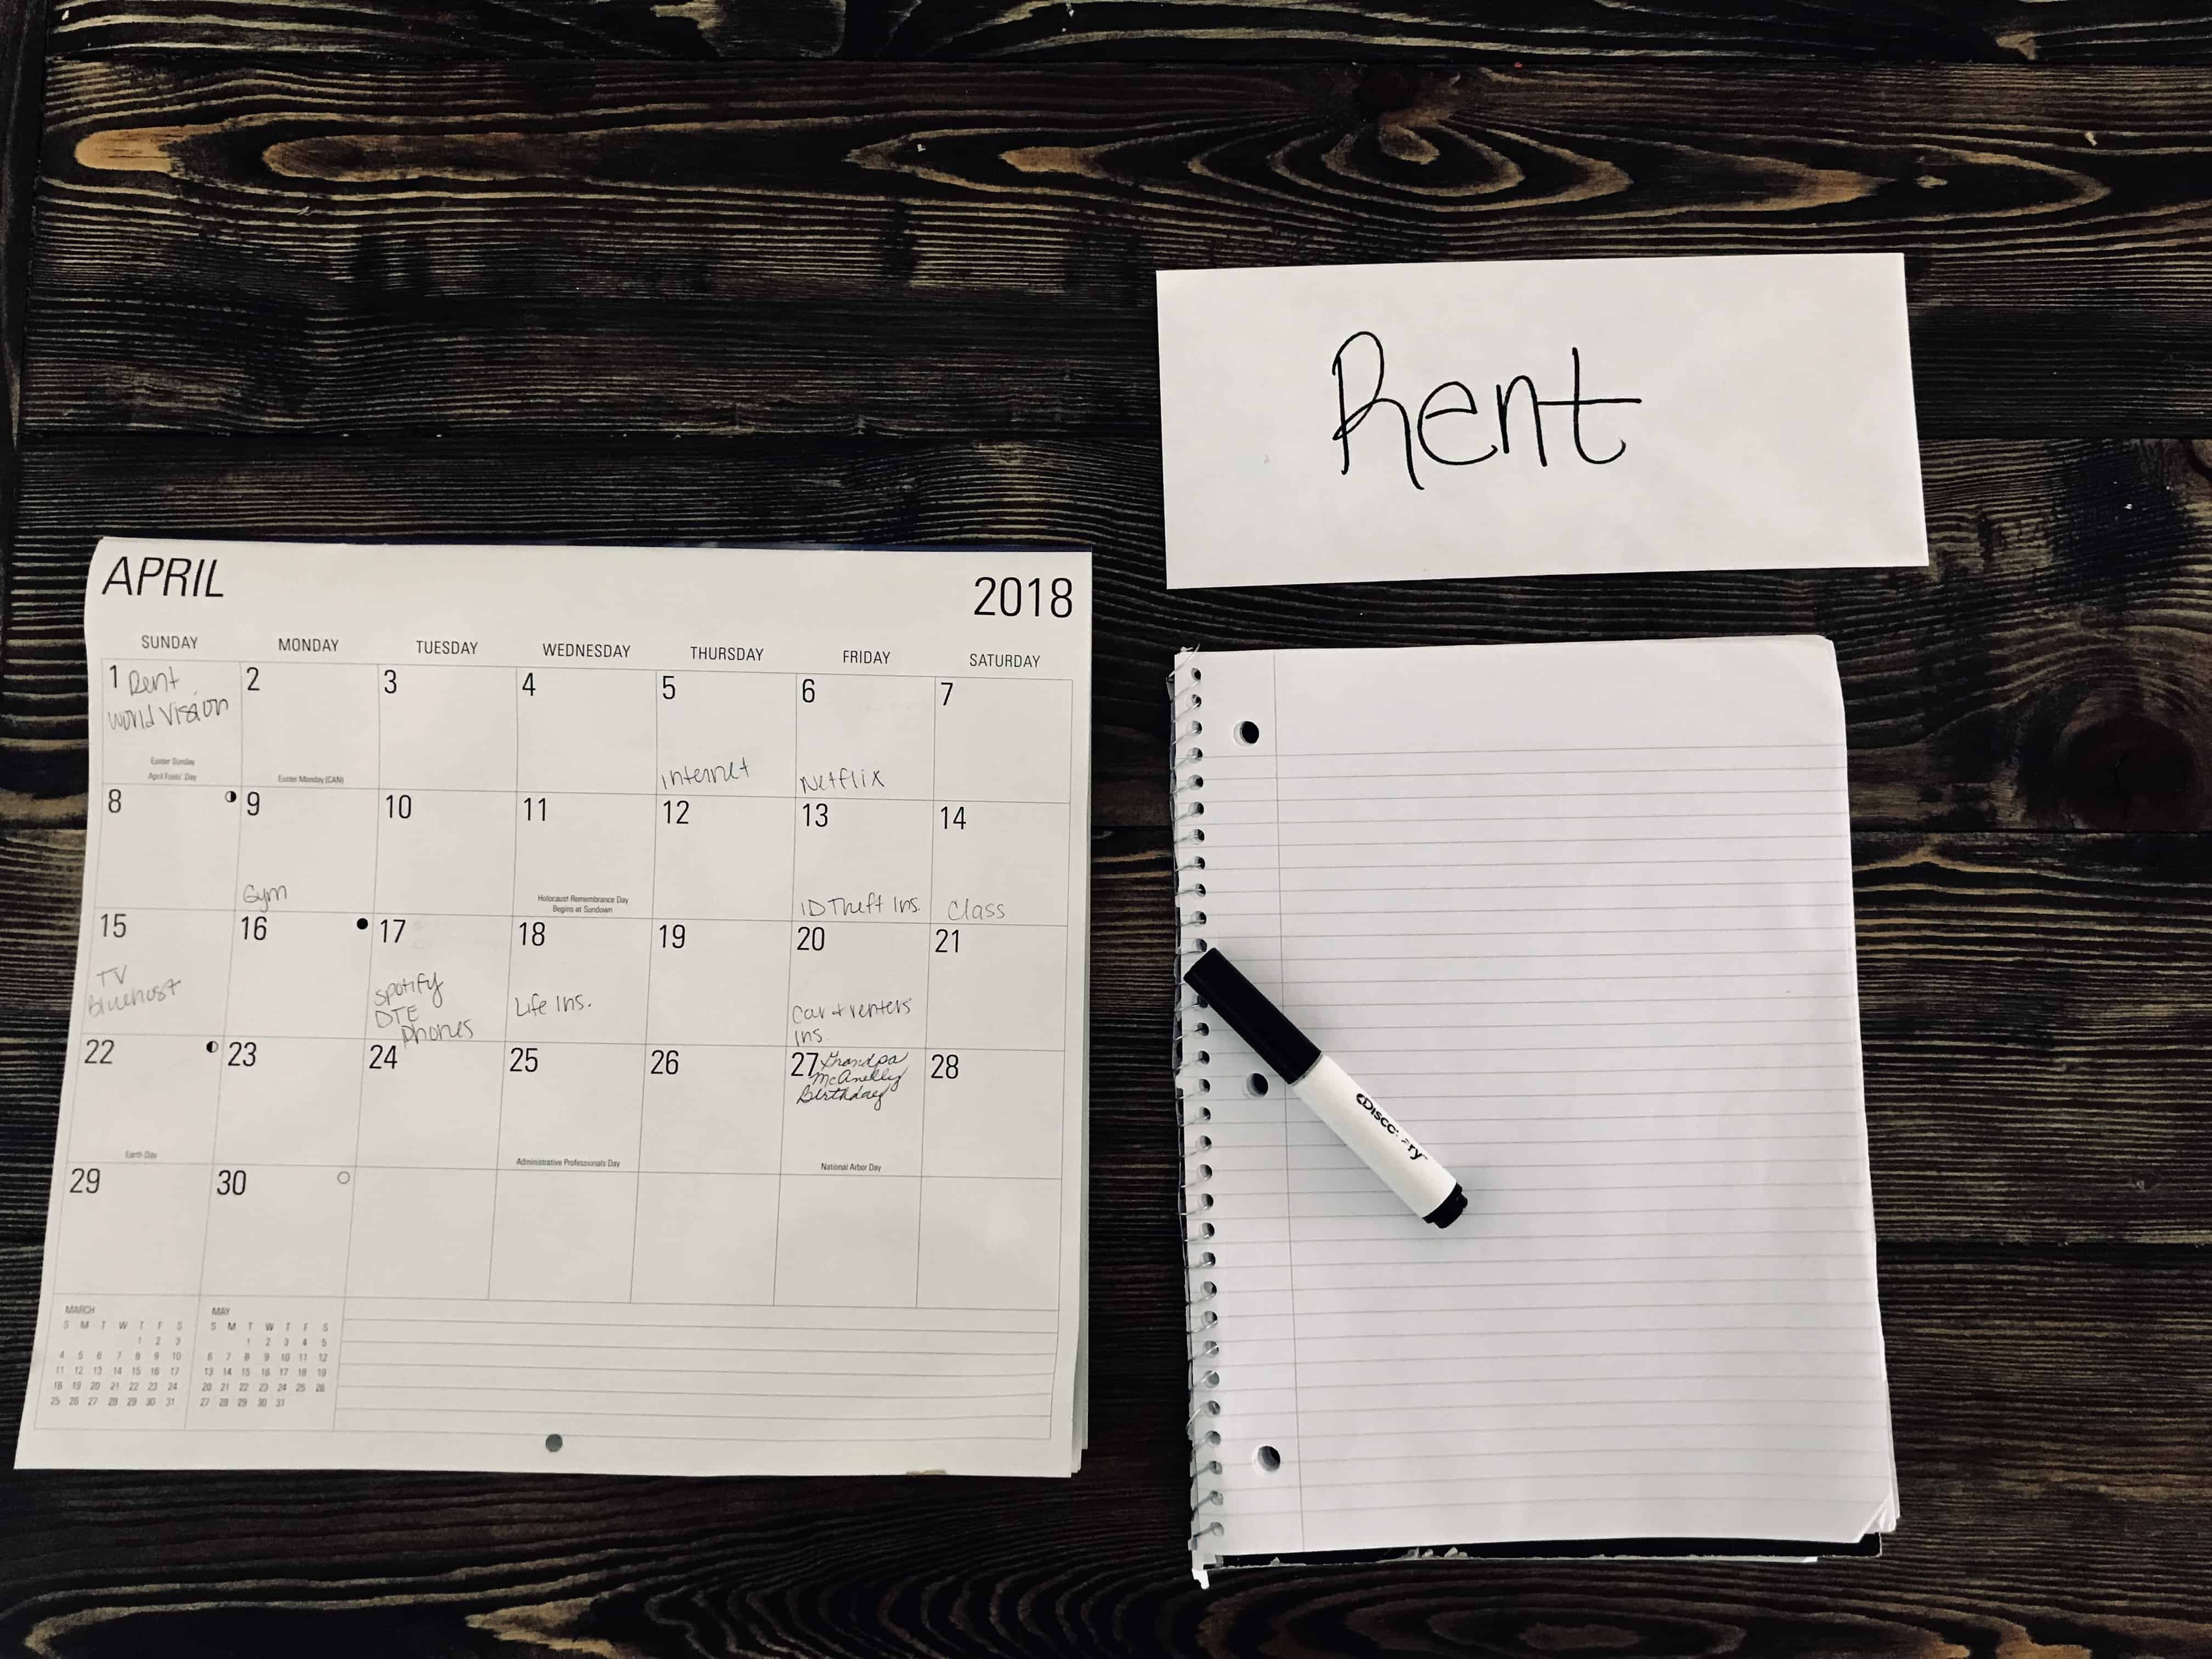 Rent
APRIL
2018
SUNDAY MONDAY TUESDAY WEDNESDAY THURSDAY FRIDAY SATURDAY
1 Rent
World Vision
Easter Sunday
April Fools' Day
2
Easter Monday (CAN)
3
4
5
internet
6
Netflix
7
8
9
Gym
10
11
Holocaust Remembrance Day
Begins at Sundown
12
13
ID Theft Ins.
14
Class
15
TV
Bluehost
16
17
Spotify
DTE
Phones
18
Life Ins.
19
20
Car + renters
Ins.
21
22
Earth Day
23
24
25
Administrative Professionals Day
26
27 Grandpa
McAnelly
Birthday
National Arbor Day
28
29
30
MARCH
S M T W T F S
1 2 3
4 5 6 7 8 9 10
11 12 13 14 15 16 17
18 19 20 21 22 23 24
25 26 27 28 29 30 31
MAY
S M T W T F S
1 2 3 4 5
6 7 8 9 10 11 12
13 14 15 16 17 18 19
20 21 22 23 24 25 26
27 28 29 30 31